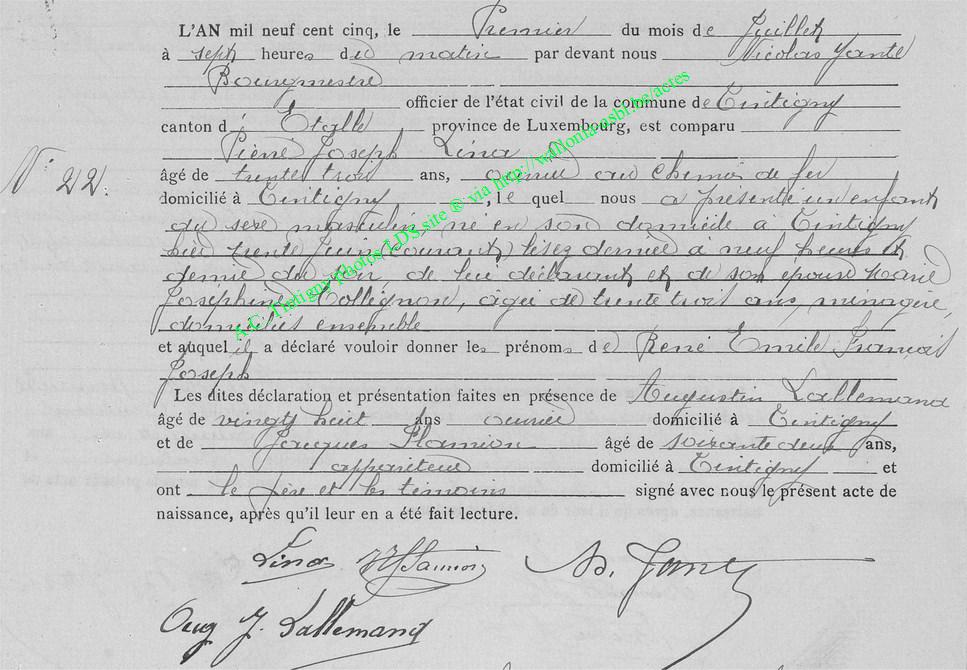 L'AN mil neuf cent cinq, le Premier du mois de Juillet
à sept heures du matin par devant nous Nicolas
Bourgmestre
officier de l'état civil de la commune de Tintigny
canton d' Etalle province de Luxembourg, est comparu
Pierre Joseph
N° 22.
âgé de trente trois ans, ouvrier au chemin de fer
domicilié à Tintigny , le quel nous a présenté un enfant
du sexe masculin né en son domicile à Tintigny
hier trente Juin à neuf heures et
demie du soir, de lui déclarant et de son épouse Marie
Joséphine Collignon, agée de trente trois ans, ménagère,
domiciliés ensemble
et auquel il a déclaré vouloir donner les prénoms de René Emile François
Joseph
Les dites déclaration et présentation faites en présence de Augustin Lallemand
âgé de vingt huit ans ouvrier domicilié à Tintigny
et de Jacques âgé de soixante deux ans,
appariteur domicilié à Tintigny et
ont le père et les témoins signé avec nous le présent acte de
naissance, après qu'il leur en a été fait lecture.
Aug J. Lallemand
A.C. Tintigny Photos LDS site ® via http://wallonia.asbl.be/actes